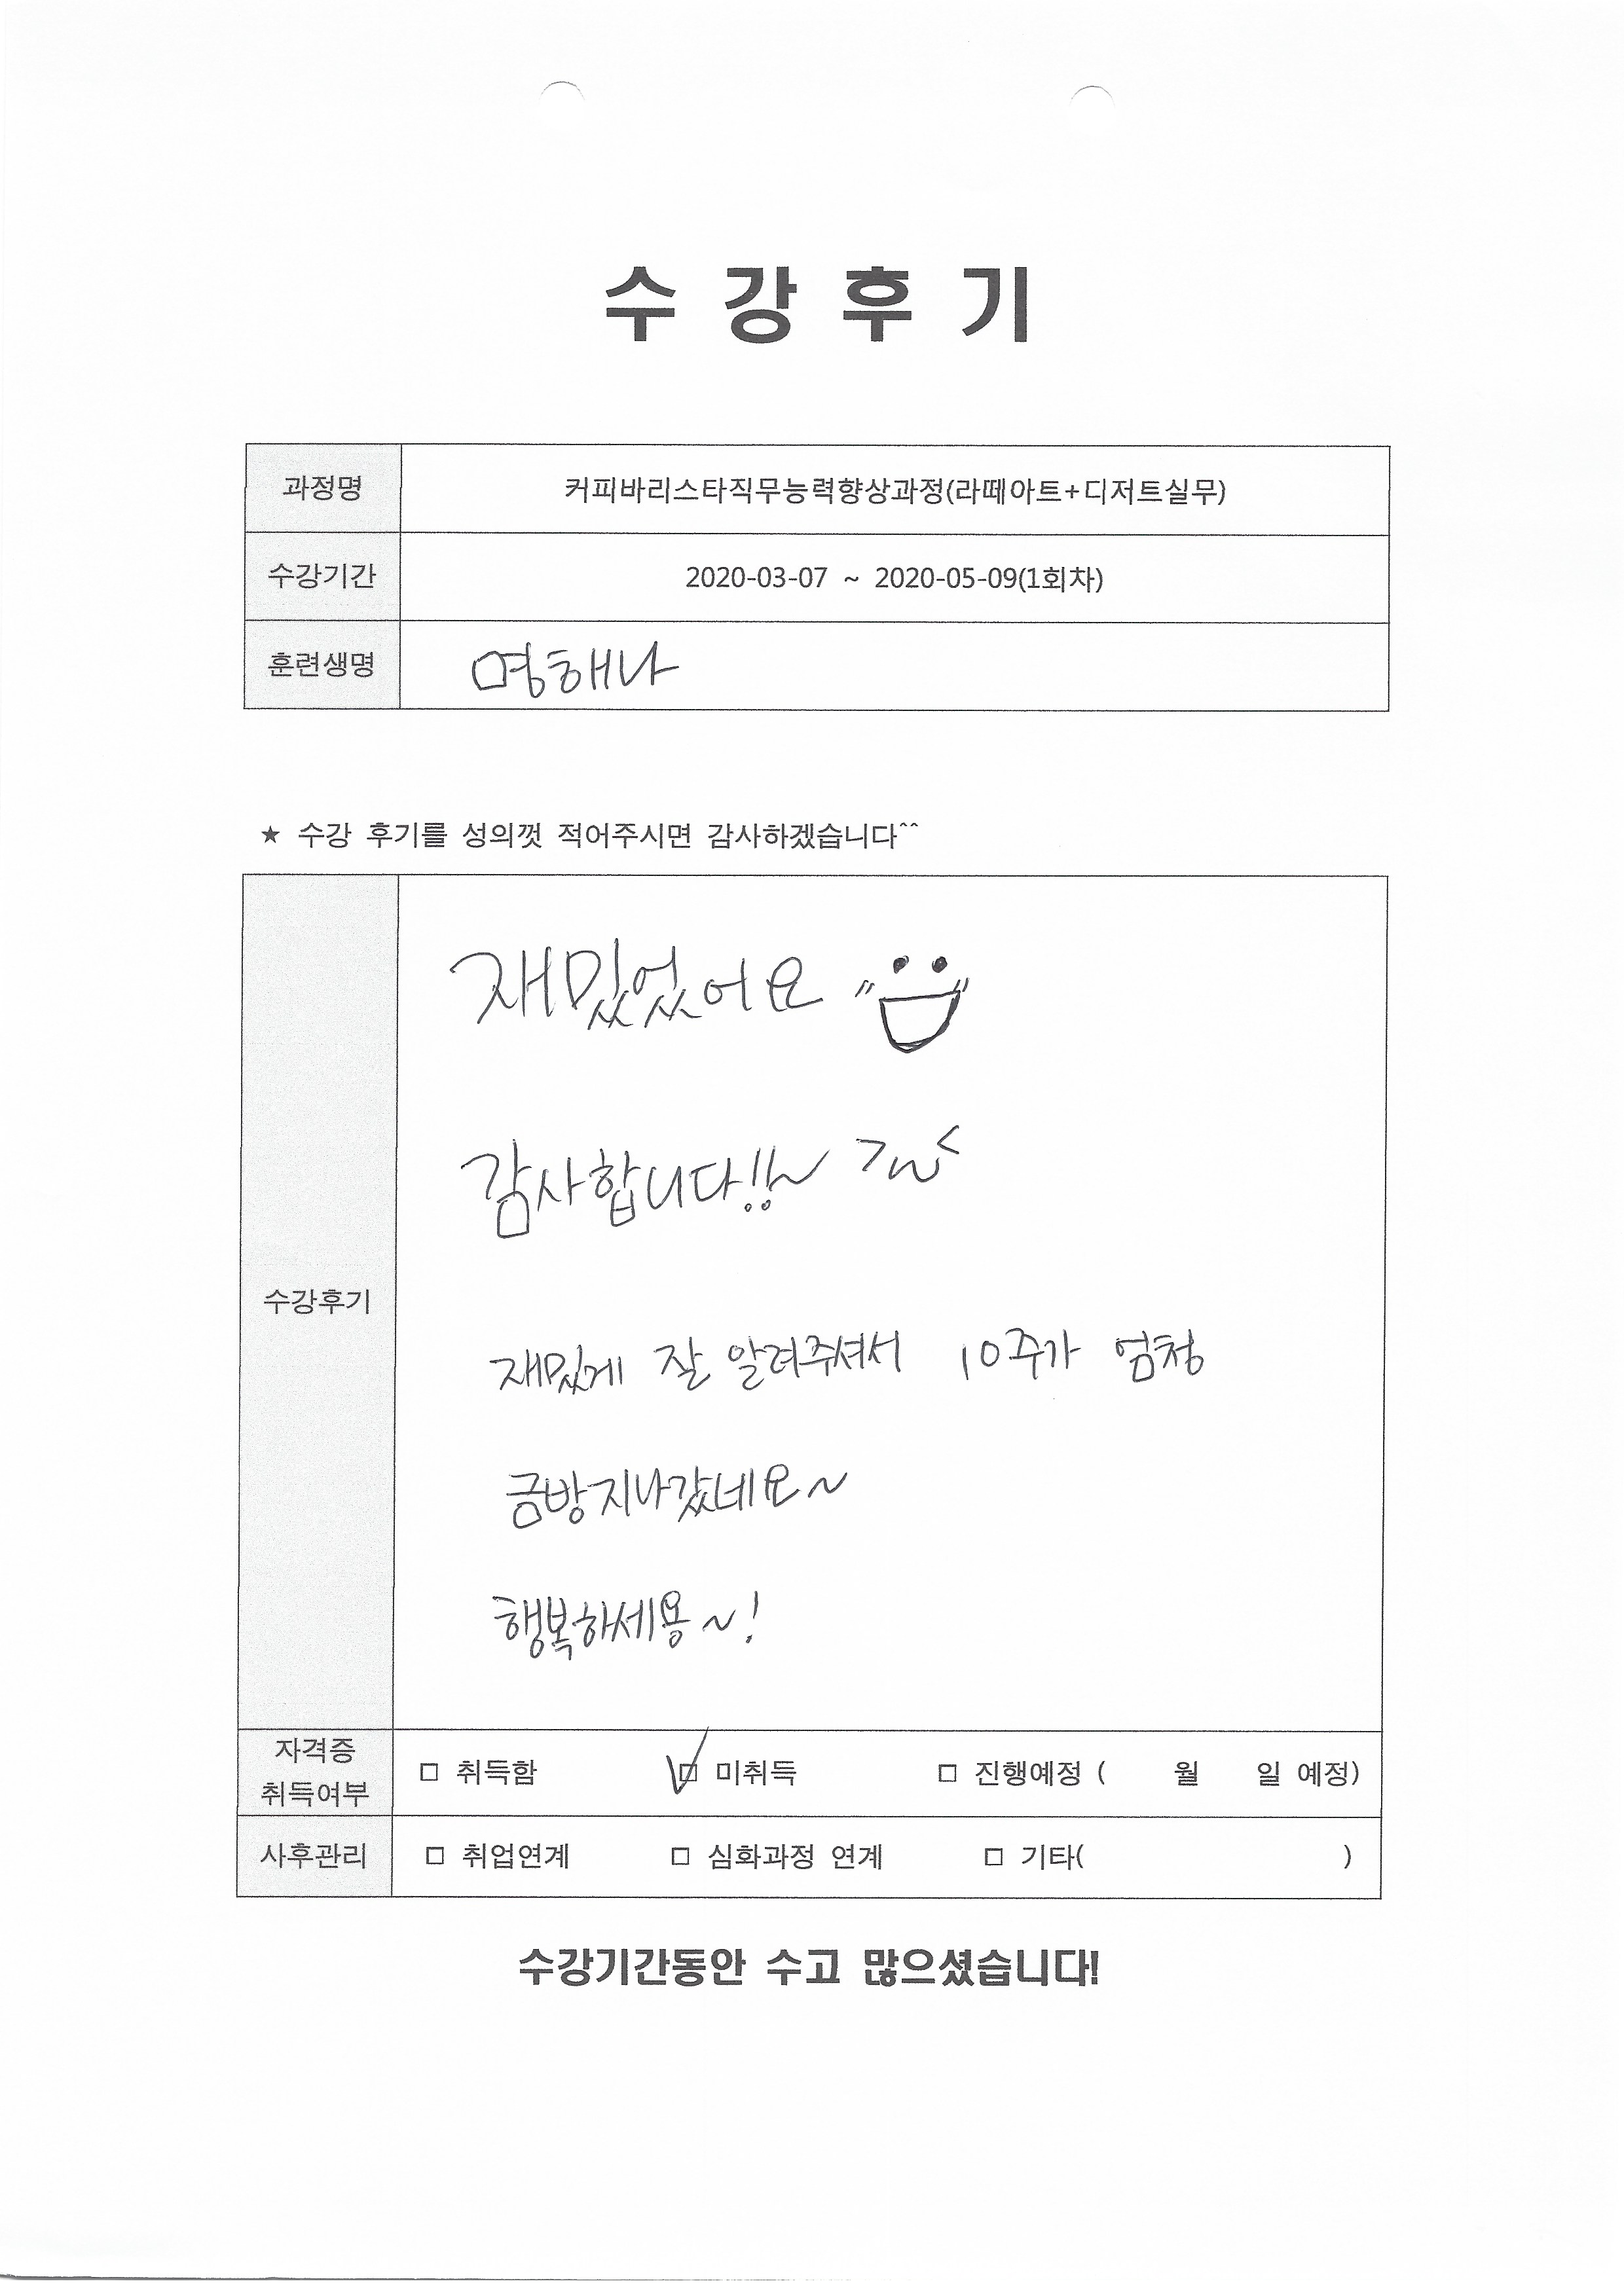 수 강 후 기
과정명 커피바리스타직무능력향상과정(라떼아트+디저트실무)
수강기간 2020-03-07 ~ 2020-05-09(1회차)
훈련생명 명해나
★ 수강 후기를 성의껏 적어주시면 감사하겠습니다^^
재밌었어요
감사합니다!!~ >~<
수강후기
재밌게 잘 알려주셔서 10주가 엄청
금방지나갔네요~
행복하세용~!
자격증
취득여부
□ 취득함 □ 미취득 □ 진행예정 ( 월 일 예정)
사후관리 □ 취업연계 □ 심화과정 연계 □ 기타( )
수강기간동안 수고 많으셨습니다!